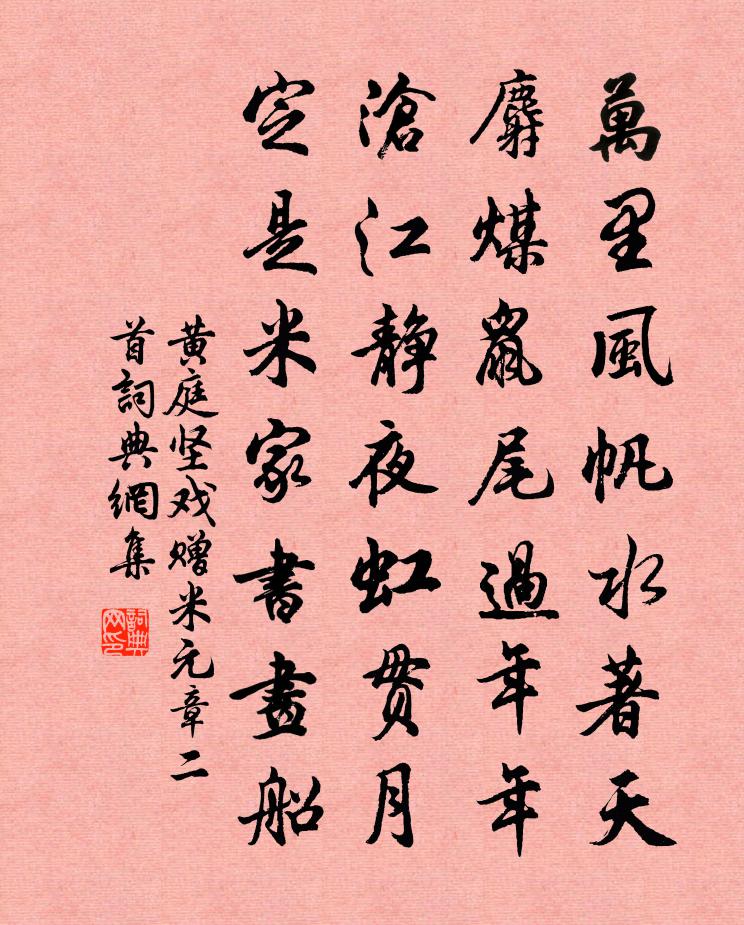 萬里風帆水著天
麝煤鼠尾過年年
滄江静夜虹貫月
定是米家書畫船
黄庭坚戏赠米元章二
首詞典網集
詞典
网印